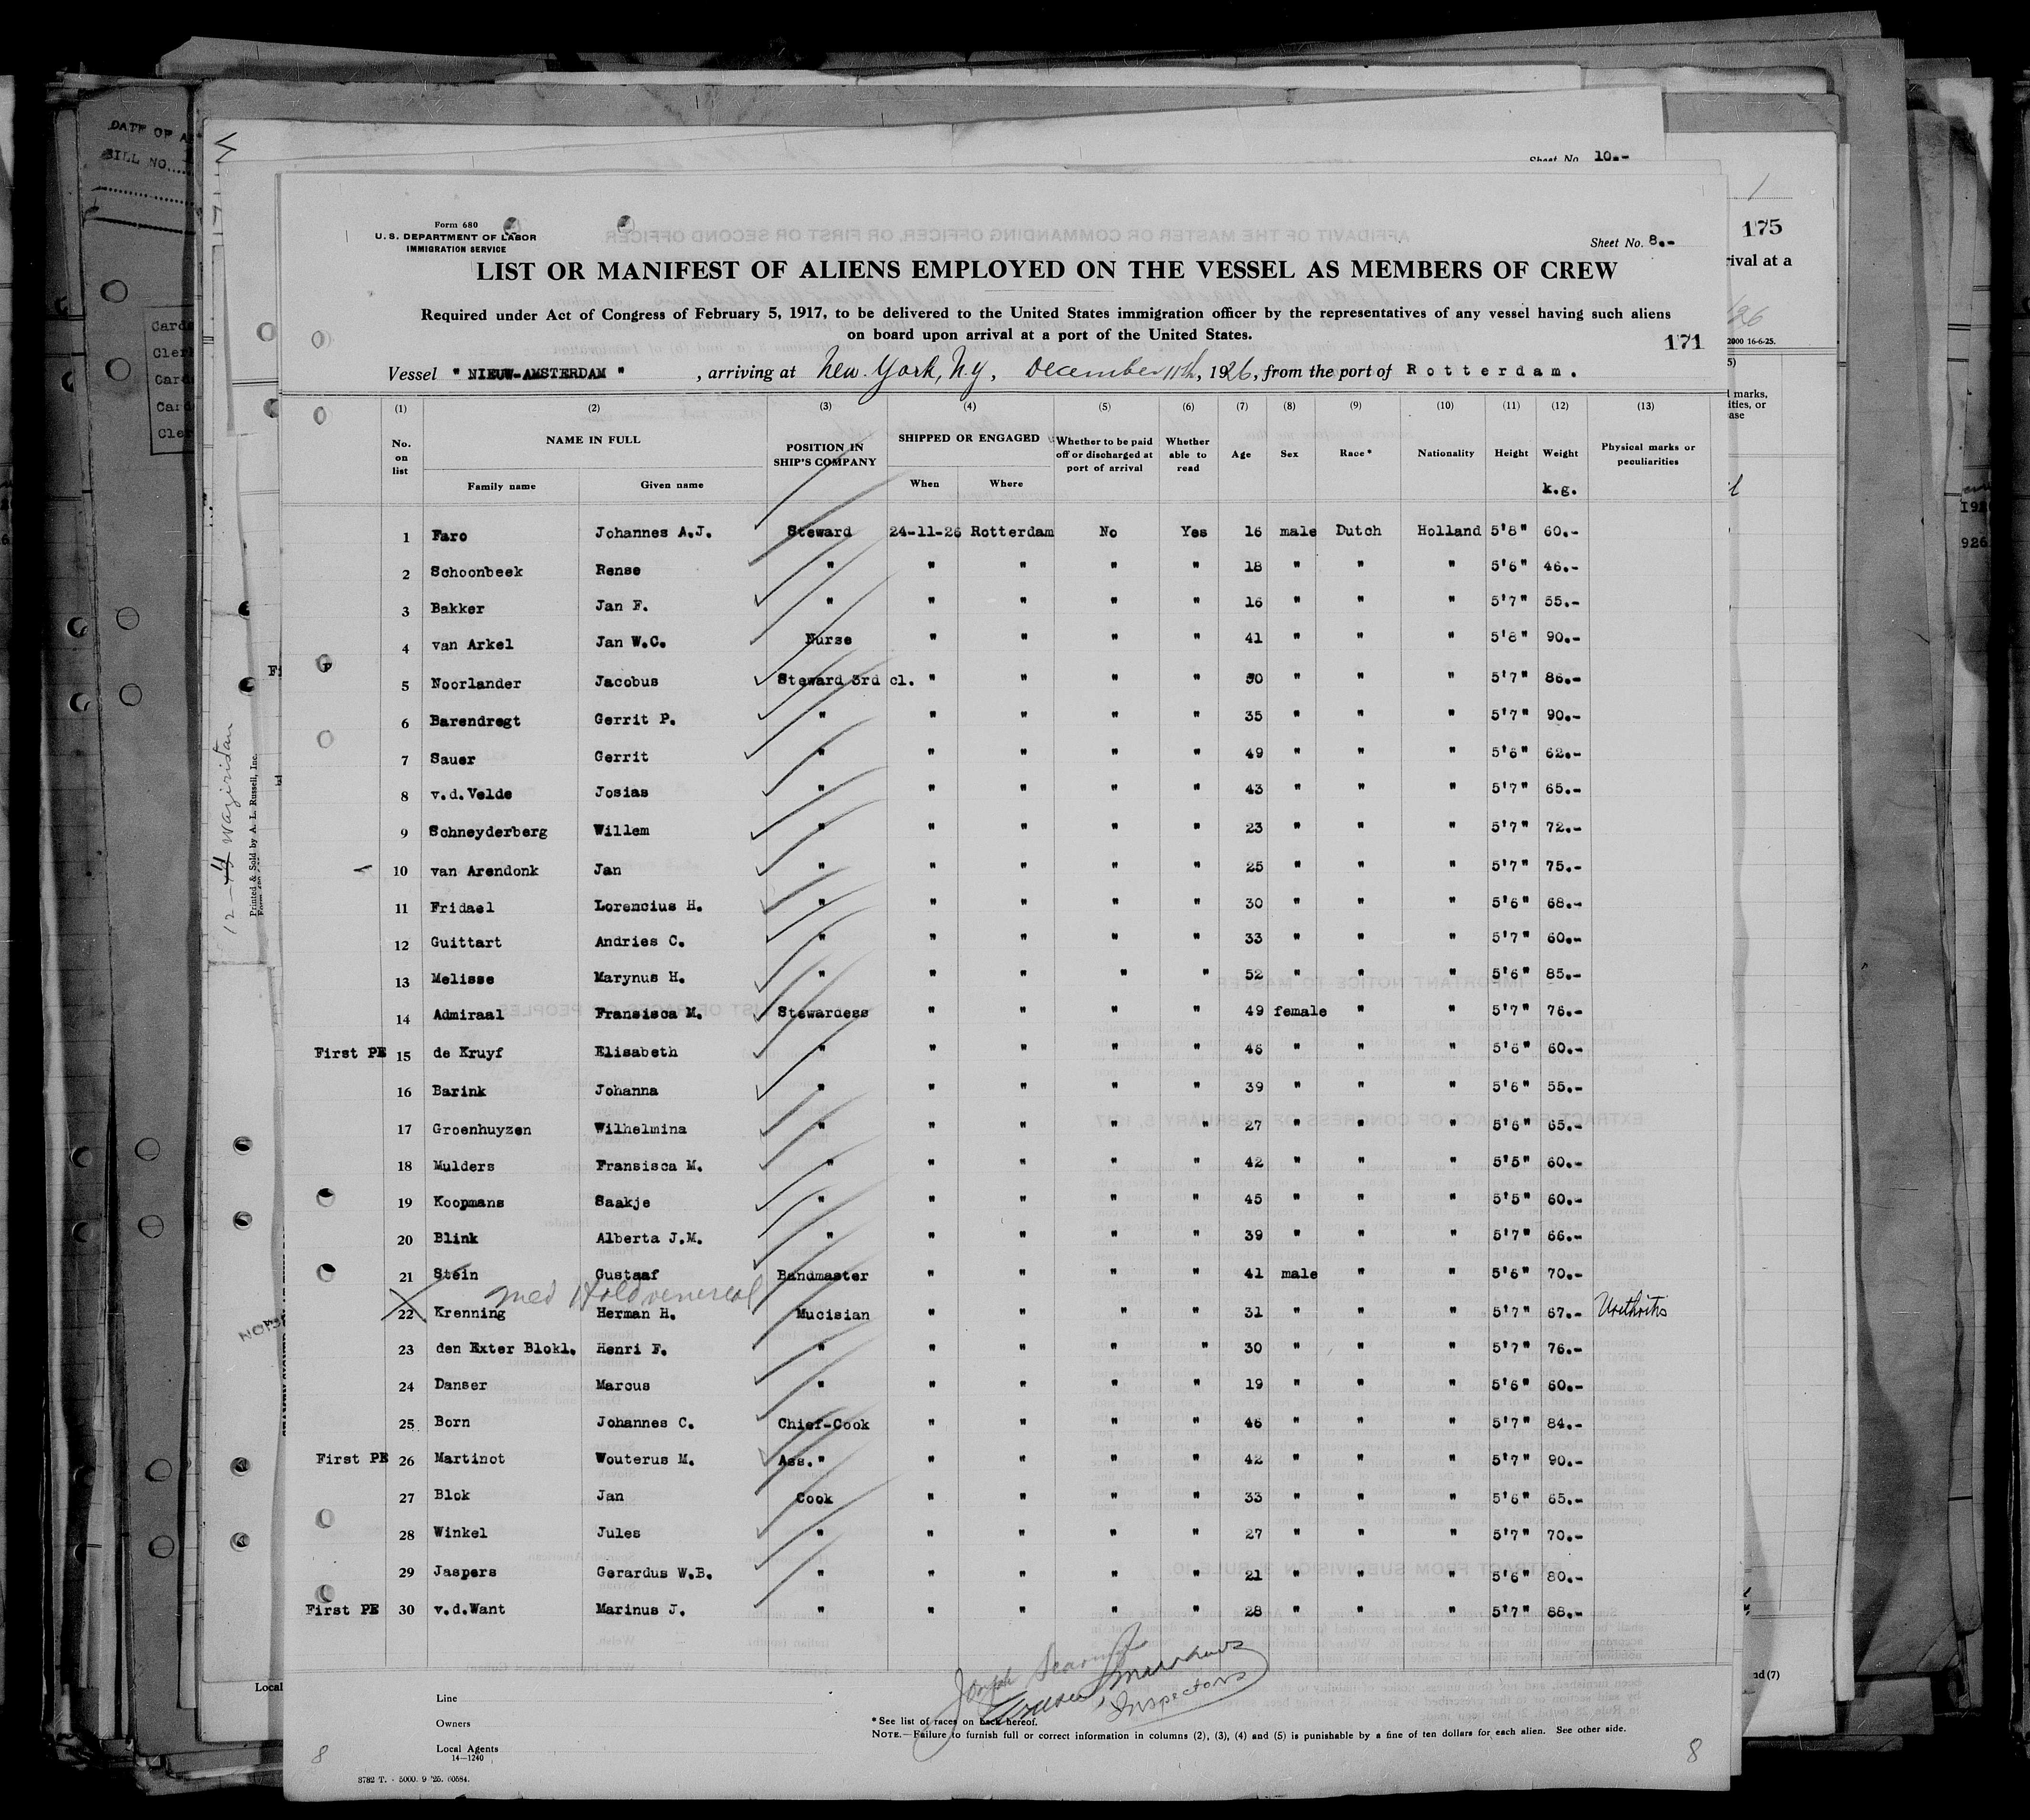 DATE OF A
BILL NO.
Sheet No. 10.-
175
rival at a
2000 16-6-25.
Form 680
U. S. DEPARTMENT OF LABOR
IMMIGRATION SERVICE
Sheet No. 8.-
LIST OR MANIFEST OF ALIENS EMPLOYED ON THE VESSEL AS MEMBERS OF CREW
Required under Act of Congress of February 5, 1917, to be delivered to the United States immigration officer by the representatives of any vessel having such aliens
on board upon arrival at a port of the United States.
171
Vessel " NIEUW-AMSTERDAM " , arriving at New York, N.Y, December 11th, 1926, from the port of Rotterdam.
(1) (2) (3) (4) (5) (6) (7) (8) (9) (10) (11) (12) (13)
No. on list NAME IN FULL Family name Given name POSITION IN SHIP'S COMPANY SHIPPED OR ENGAGED When Where Whether to be paid off or discharged at port of arrival Whether able to read Age Sex Race* Nationality Height Weight k.g. Physical marks or peculiarities
1 Faro Johannes A.J. Steward 24-11-26 Rotterdam No Yes 16 male Dutch Holland 5'8" 60.-
2 Schoonbeek Rense " " " " " 18 " " " 5'6" 46.-
3 Bakker Jan F. " " " " " 16 " " " 5'7" 55.-
4 van Arkel Jan W.C. Nurse " " " " 41 " " " 5'8" 90.-
5 Noorlander Jacobus Steward 3rd cl. " " " " 50 " " " 5'7" 86.-
6 Barendregt Gerrit P. " " " " " 35 " " " 5'7" 90.-
7 Sauer Gerrit " " " " " 49 " " " 5'6" 62.-
8 v.d.Velde Josias " " " " " 43 " " " 5'7" 65.-
9 Schneyderberg Willem " " " " " 23 " " " 5'7" 72.-
10 van Arendonk Jan " " " " " 25 " " " 5'7" 75.-
11 Fridael Lorencius H. " " " " " 30 " " " 5'6" 68.-
12 Guittart Andries C. " " " " " 33 " " " 5'7" 60.-
13 Melisse Marynus H. " " " " " 52 " " " 5'6" 85.-
14 Admiraal Fransisca M. Stewardess " " " " 49 female " " 5'7" 76.-
First PE 15 de Kruyf Elisabeth " " " " " 46 " " " 5'6" 60.-
16 Barink Johanna " " " " " 39 " " " 5'6" 55.-
17 Groenhuyzen Wilhelmina " " " " " 27 " " " 5'6" 65.-
18 Mulders Fransisca M. " " " " " 42 " " " 5'5" 60.-
19 Koopmans Saakje " " " " " 45 " " " 5'5" 60.-
20 Blink Alberta J.M. " " " " " 39 " " " 5'7" 66.-
21 Stein Gustaaf Bandmaster " " " " 41 male " " 5'6" 70.-
med Hold venereal
22 Krenning Herman H. Mucisian " " " " 31 " " " 5'7" 67.- Urethritis
23 den Exter Blokl. Henri F. " " " " " 30 " " " 5'7" 76.-
24 Danser Marcus " " " " " 19 " " " 5'6" 60.-
25 Born Johannes C. Chief-Cook " " " " 46 " " " 5'7" 84.-
First PE 26 Martinot Wouterus M. Ass. " " " " " 42 " " " 5'7" 90.-
27 Blok Jan Cook " " " " 33 " " " 5'6" 65.-
28 Winkel Jules " " " " " 27 " " " 5'7" 70.-
29 Jaspers Gerardus W.B. " " " " " 21 " " " 5'6" 80.-
First PE 30 v.d.Want Marinus J. " " " " " 28 " " " 5'7" 88.-
Joseph
Inspectors
Line
Owners
Local Agents
14—1240
* See list of races on back hereof.
NOTE.—Failure to furnish full or correct information in columns (2), (3), (4) and (5) is punishable by a fine of ten dollars for each alien. See other side.
8
8
3782 T. - 5000. 9 '25. 60584.
Printed & Sold by A. L. Russell, Inc.
Local
nd (7)